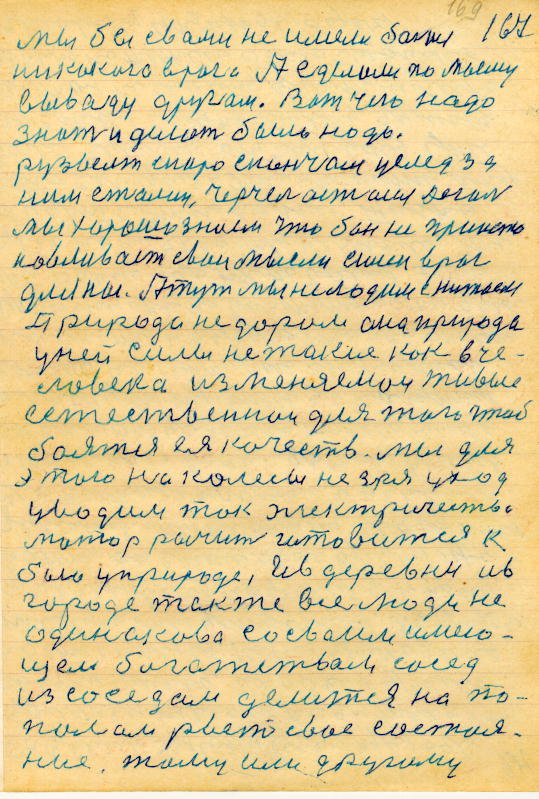 169 167
мы бы с вами не имели бы
никокого врога А сделоли по твоему
выводу другом. Вот чего надо
знот и делот быль нодь.
рузвелт скоро скончалм целед за
ним сталин, черчел остался
мы хорошо знаем что бан не приосто
новливает свои мысли
для ны. А тут мы не людим снитаем
Природа недором она природа
у ней силы не такие как в че-
ловека изменяемои тивые
сетественнои для того чтоб
боятся ея качеств. мы для
этого на колесы не зря уход
уводим ток электричесть.
мотор готовится к
было у природе, И в деревни и в
городе также все люди не
одинакова со своим имею-
щем богатством сосед
из соседам делится на по-
полам рвет свое состоя-
ние. тому или другому